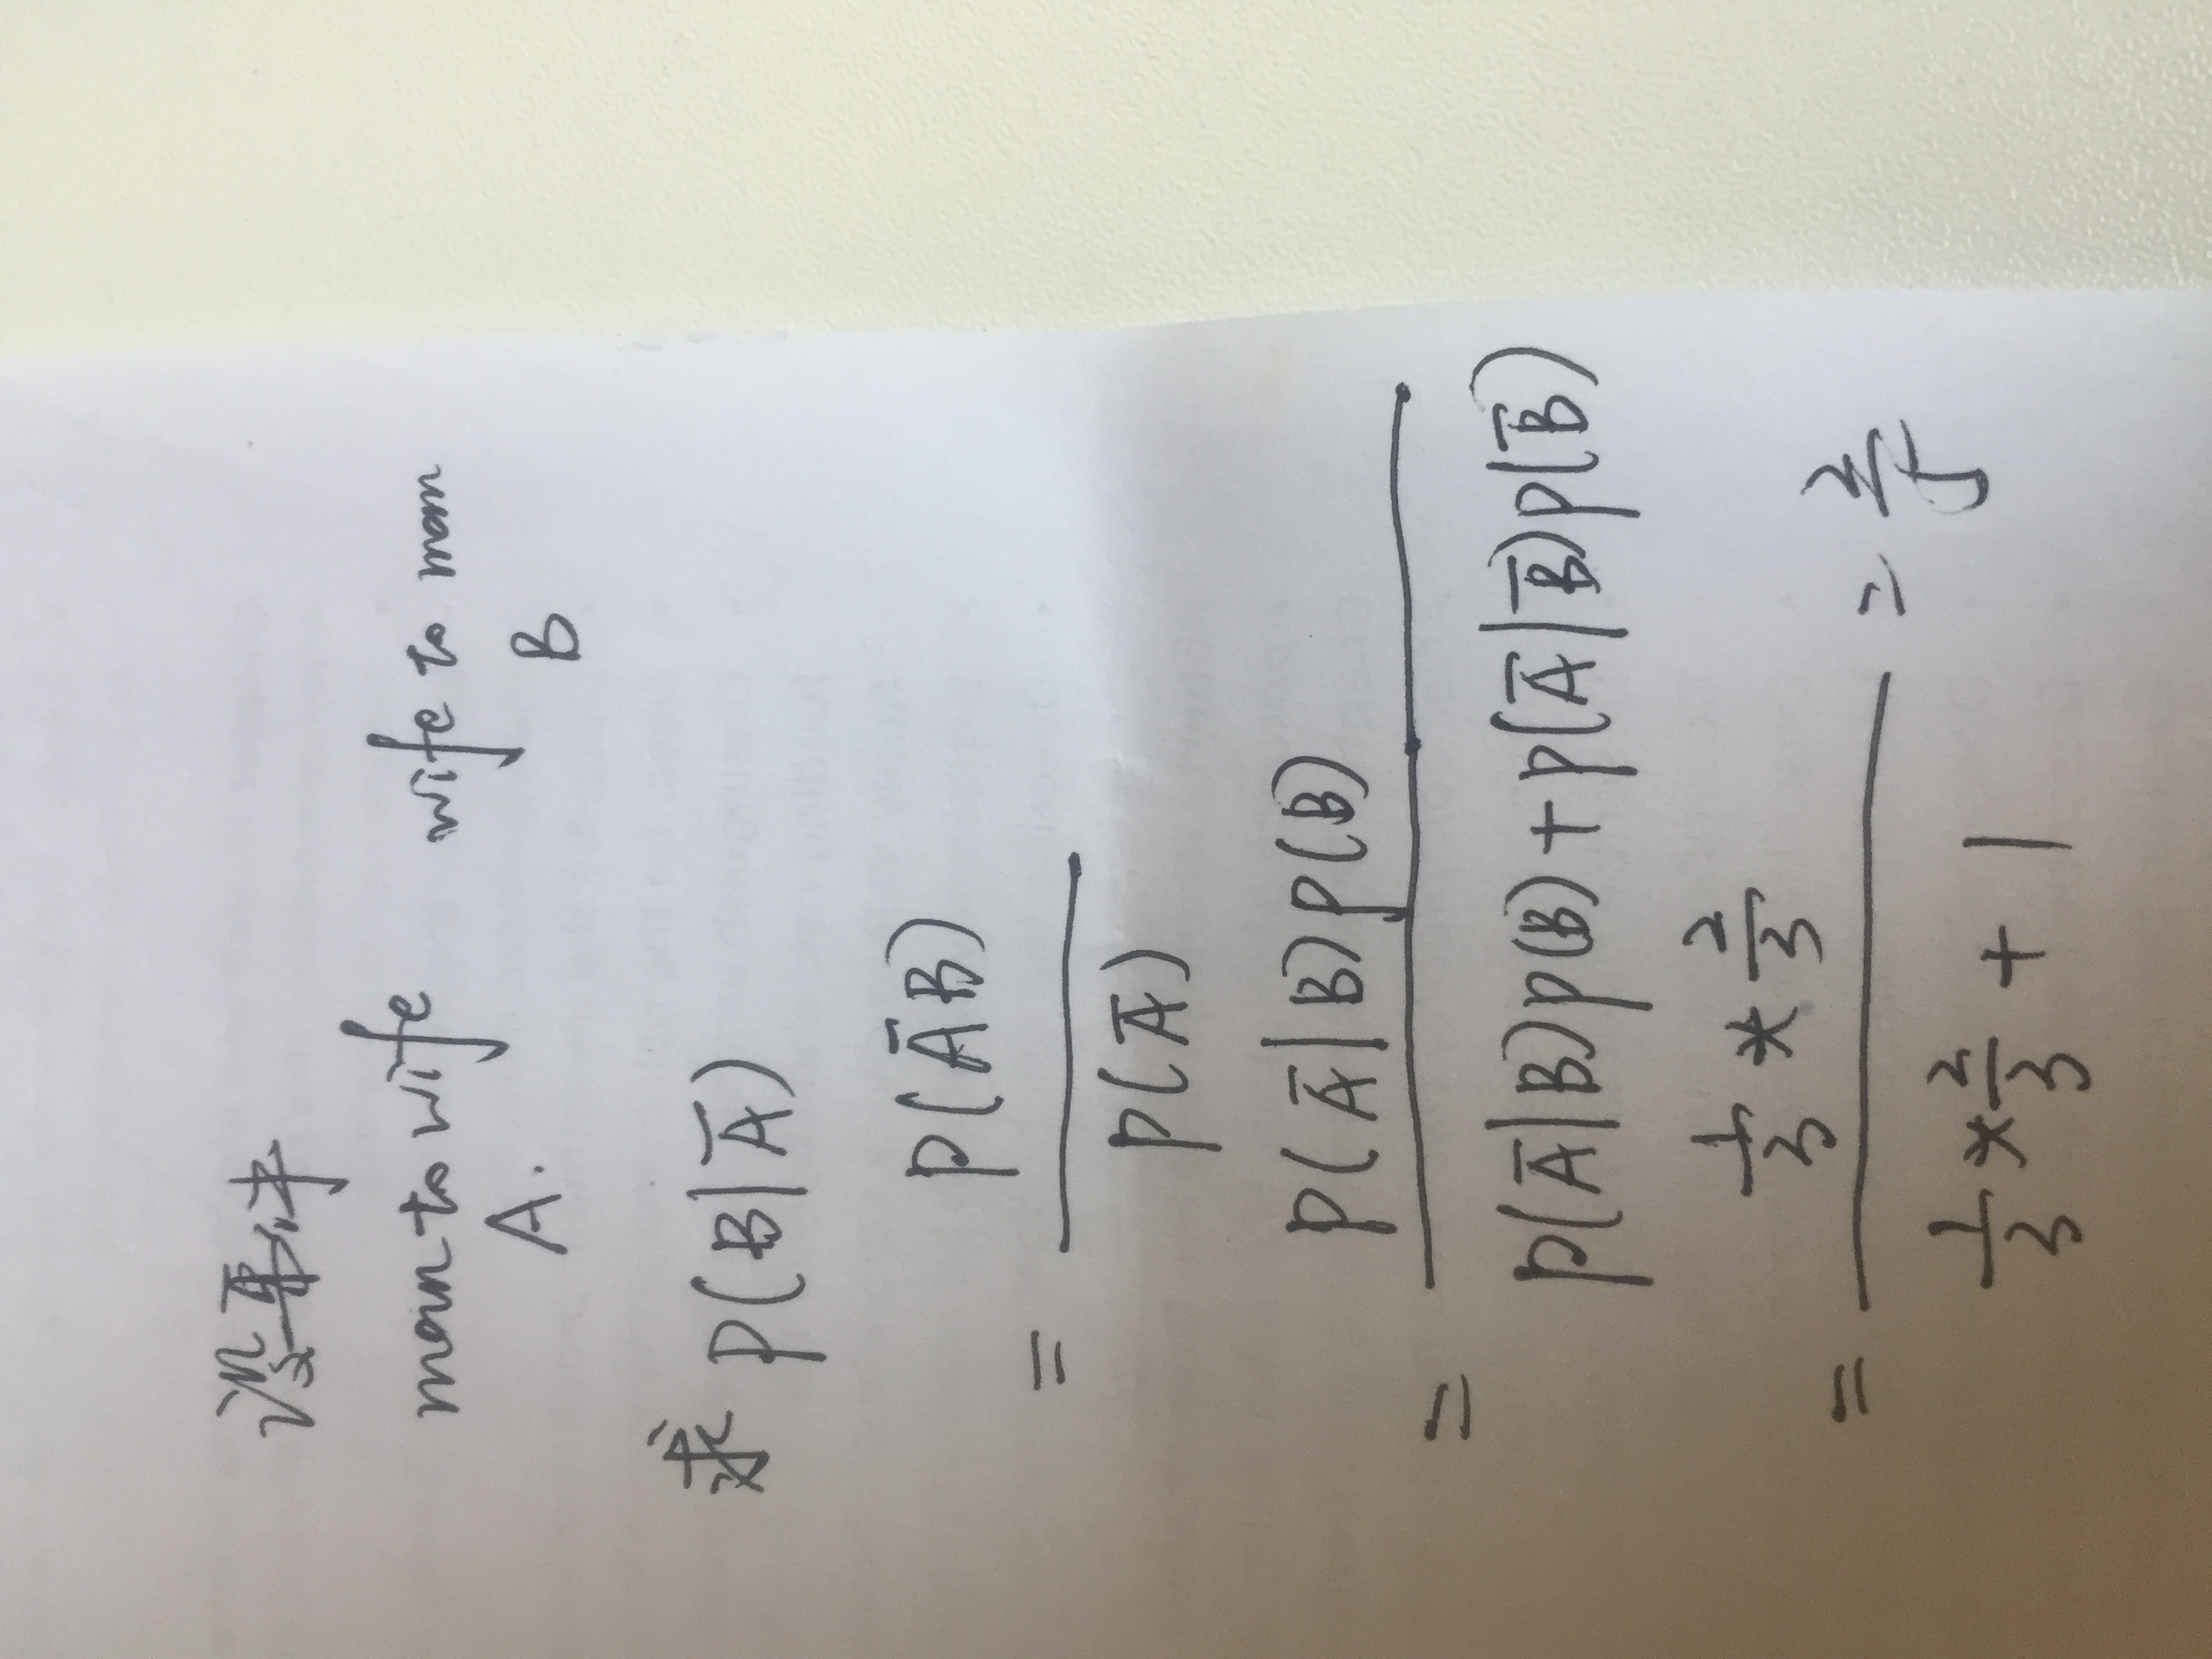 设事件
man to wife wife to man
A. B
求 P(B|A̅)
= P(A̅B) / P(A̅)
= P(A̅|B)P(B) / P(A̅|B)P(B) + P(A̅|B̅)P(B̅)
= 1/3 * 2/3 / 1/3 * 2/3 + 1 = 2/5